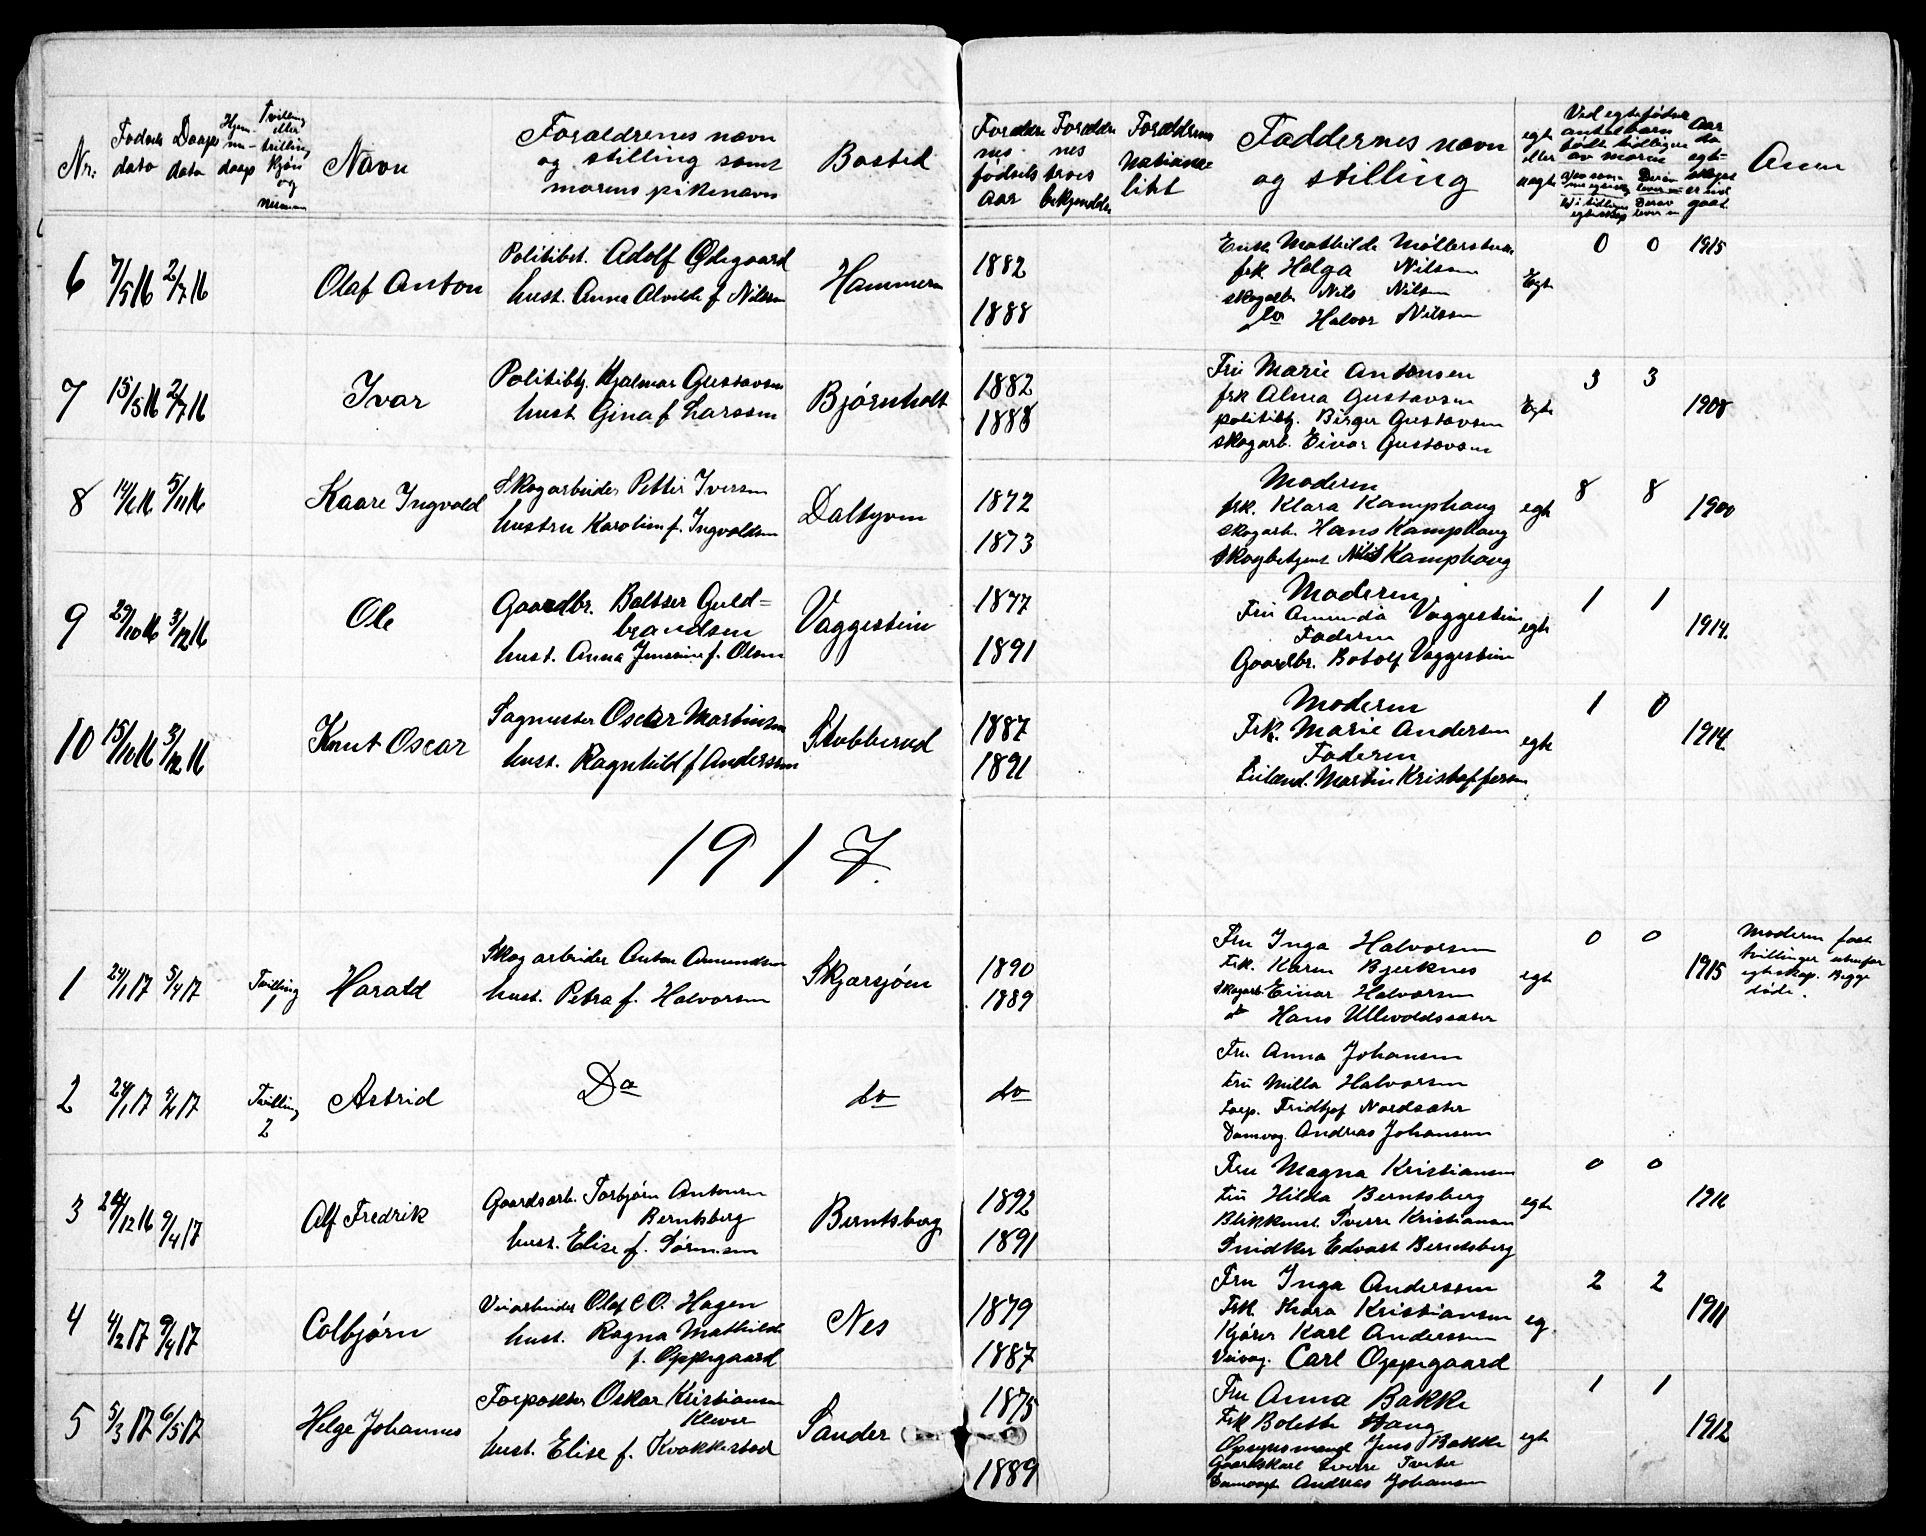 Nr. Fødsels dato Daaps dato Hjem- me- daap Tvilling eller trilling kjøn og nummer Navn Forældrenes navn og stilling samt morens pikenavn Bosted Forældre nes fødsels aar Forældre nes troes bekjendelse Forældrenes Nationali litet Faddernes navn og stilling egte eller uegte Ved egtefødsler antal barn født tidligere av moren Aar da egte- skapet er ind gaat. Anm
6 7/5 16 2/7 16 Olaf Anton Politibet. Adolf Ødegaard Hammeren 1882 Enke Mathilde Møllerstuen 0 0 1915
hust. Anna Alvilde f. Nilsen 1888 frk Helga Nilsen Egte
skogarb. Nils Nilsen
do Halvor Nilsen
7 15/5 16 2/7 16 Ivar Politibtj. Hjalmar Gustavsen Bjørnholt 1882 Fru Marie Antonsen 3 3
hust Gina f Larssen 1888 frk Alma Gustavsen Egte 1908
politibtj. Birger Gustavsen
skogarb. Einar Gustavsen
8 5/11 16 Kaare Ingvald Skogarbeider Petter Iversen 1872 Moderen 8 8
hustru Karolin f. Ingvaldsen 1873 frk. Klara Kamphaug egte 1900
skogarb. Hans Kamphaug
Skogbetjent Nils Kamphaug
9 29/10 16 3/12 16 Ole Gaardbr. Baltzer Guld= Vaggestein 1877 Moderen 1 1
brandsen Fru Amunda Vaggestein egte 1914.
hust. Anna Jensine f. Olsen 1891 Faderen
Gaardbr. Botolf Vaggestein
10 15/10 16 3/12 16 Knut Oscar Sagmester Oscar Martinsen Stubberud 1887 Moderen 1 0
hust. Ragnhild f Anderssen 1891 Frk. Marie Andersen egte 1914.
Faderen
Martin Kristoffersen
1917.
1 24/1 17 5/4 17 Tvilling 1 Harald Skogarbeider Anton Amundsen Skjærsjøen 1890 Fru Inga Halvorsen 0 0 Moderen født
hust. Petra f. Halvorsen 1889 Frk. Karen Bjerknes egte 1915 tvillinger utenfor
Skogarb. Einar Halvorsen egteskap. Begge
do Hans Ullevoldssæter døde.
2 24/1 17 5/4 17 Tvilling 2 Astrid Do do do Fru Anna Johansen
Fru Milla Halvorsen
Torp. Fridtjof Nordsæter
Damvog. Andreas Johansen
3 9/4 17 Alf Fredrik Gaardsarb. Torbjørn Antonsen Berntsberg 1892 Fru Magna Kristiansen 0 0
Berntsberg Fru Hilda Berntsberg egte 1916
hust. Elise f. Sørensen 1891 Blikkensl. Sverre Kristiansen
Snidker Edvart Berntsberg
4 4/2 17 9/4 17 Colbjørn Veiarbeider Olaf C O. Hagen Nes 1879 Fru Inga Anderssen 2 2
hust. Ragna Mathilde Frk. Thora Kristiansen eg. 1911
f. Oppegaard 1887 Kjører Karl Anderssen
Veivog. Carl Oppegaard
5 5/3 17 6/5 17 Helge Johannes Forpakter Oskar Kristiansen Sander 1875 Fru Anna Bakke 1 1
Klever Frk Bolette Haug 1912
hust. Elise f. Kvakkestad 1889 Opsynsmand Jens Bakke egte
Gaardskarl Sverre Tveter
Damvogt Andreas Johansen